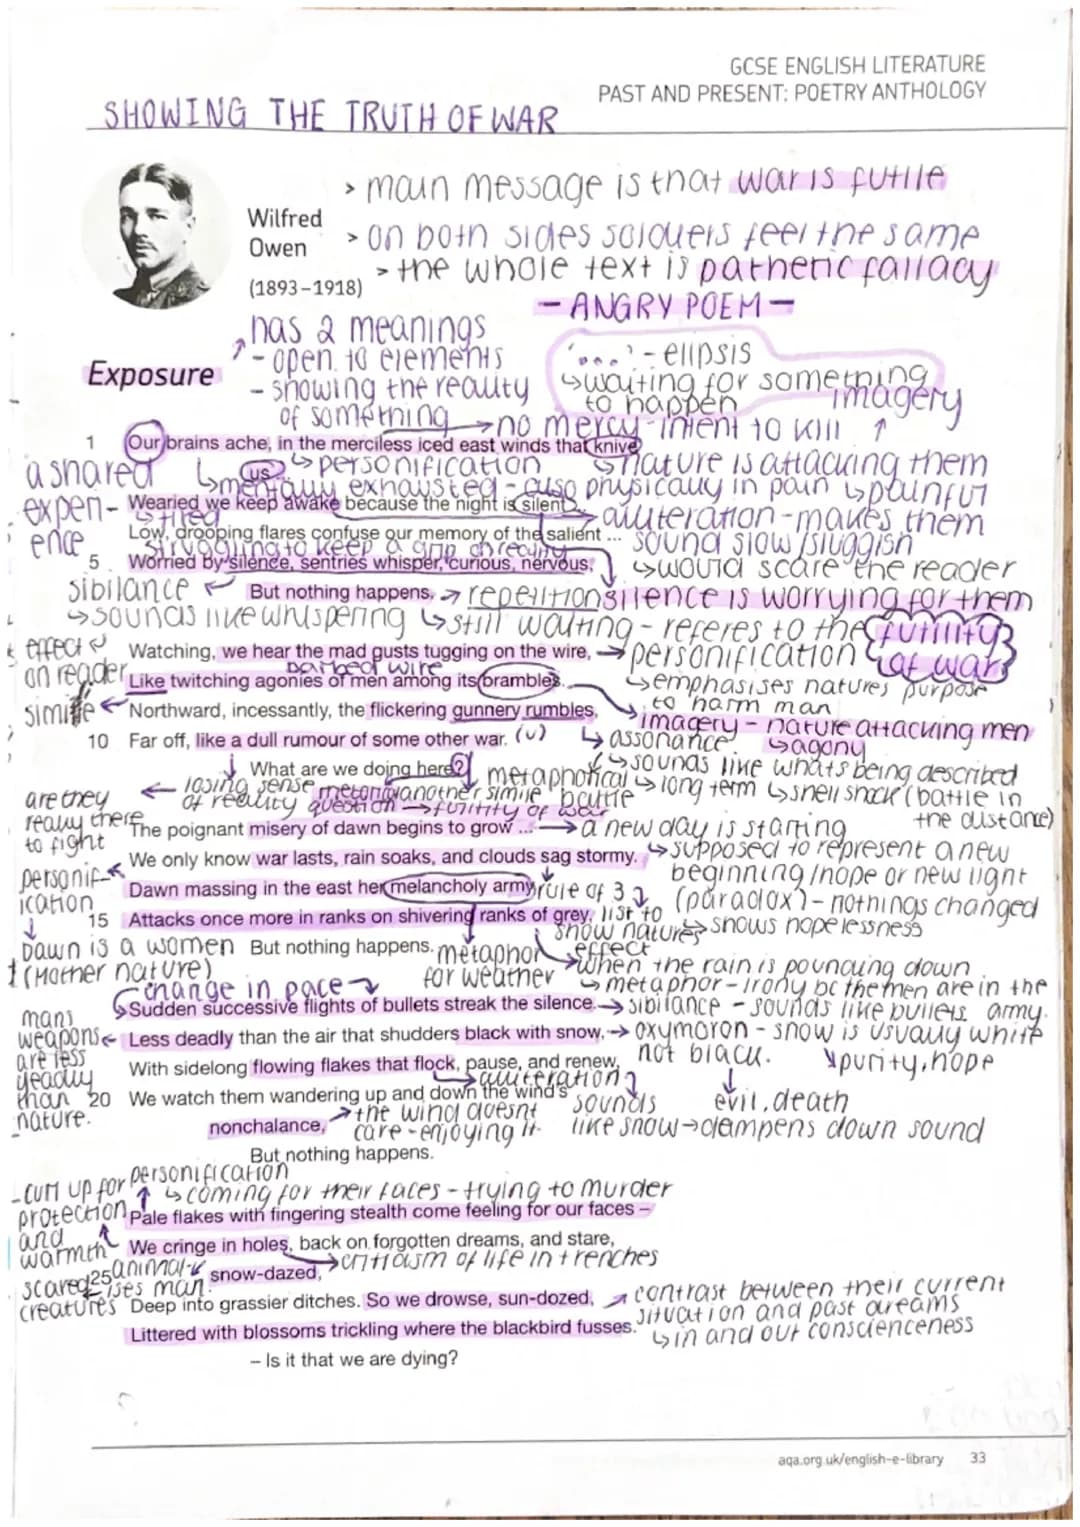 GCSE ENGLISH LITERATURE
PAST AND PRESENT: POETRY ANTHOLOGY
SHOWING THE TRUTH OF WAR
> main message is that war is futile
Wilfred
Owen
(1893–1918)
> on both sides soldiers feel the same
> the whole text is pathetic fallacy
- ANGRY POEM -
has 2 meanings
- open to elements
- showing the reality
of something
Exposure
'...' - elipsis
↳ waiting for something
to happen
imagery
→ no mercy - intent to kill
1 Our brains ache, in the merciless iced east winds that knive
us
a shared
experience
↳ personification
↳ nature is attacking them
↳ mentally exhausted - also physically in pain ↳ painful
Wearied we keep awake because the night is silent...
↳ tired
alliteration - makes them
sound slow/sluggish
Low, drooping flares confuse our memory of the salient ...
struggling to keep a grip on reality
5 Worried by silence, sentries whisper, curious, nervous,
↳ would scare the reader
sibilance
But nothing happens. → repetition
silence is worrying for them
↳ sounds like whispering
↳ still waiting - referes to the futility of war
effect on reader
Watching, we hear the mad gusts tugging on the wire, → personification
barbed wire
↳ emphasises natures purpose
to harm man
Like twitching agonies of men among its brambles.
simile
imagery - nature attacking men
↳ agony
Northward, incessantly, the flickering gunnery rumbles,
↳ assonance
↳ sounds like whats being described
10 Far off, like a dull rumour of some other war. (v)
What are we doing here?
metaphorical battle
↳ long term ↳ shell shock (battle in
the distance)
← losing sense
of reality
another simile
question → futility of war
are they
really there
to fight
The poignant misery of dawn begins to grow ... → a new day is starting
↳ supposed to represent a new
beginning/hope or new light
(paradox) - nothings changed
→ shows hopelessness
We only know war lasts, rain soaks, and clouds sag stormy.
personification
Dawn massing in the east her melancholy army
rule of 3
list to
show natures
effect
15 Attacks once more in ranks on shivering ranks of grey,
Dawn is a women
(Mother nature)
But nothing happens.
metaphor
for weather
→ when the rain is pouncing down
↳ metaphor - irony bc the men are in the
army.
change in pace
Sudden successive flights of bullets streak the silence. → sibilance - sounds like bullets
mans
weapons
are less
deadly
than
nature.
Less deadly than the air that shudders black with snow, → oxymoron - snow is usually white
not black.
purity, hope
evil, death
With sidelong flowing flakes that flock, pause, and renew,
alliteration
sounds
like snow → dampens down sound
20 We watch them wandering up and down the wind's
nonchalance,
→ the wind doesnt
care - enjoying it
But nothing happens.
personification
↳ coming for their faces - trying to murder
- curl up for
protection
and
warmth
Pale flakes with fingering stealth come feeling for our faces –
We cringe in holes, back on forgotten dreams, and stare,
→ criticism of life in trenches
scared
creatures
animal-
ises man.
25 snow-dazed,
Deep into grassier ditches. So we drowse, sun-dozed,
contrast between their current
situation and past dreams
↳ in and out conscienceness
Littered with blossoms trickling where the blackbird fusses.
– Is it that we are dying?
aqa.org.uk/english-e-library 33